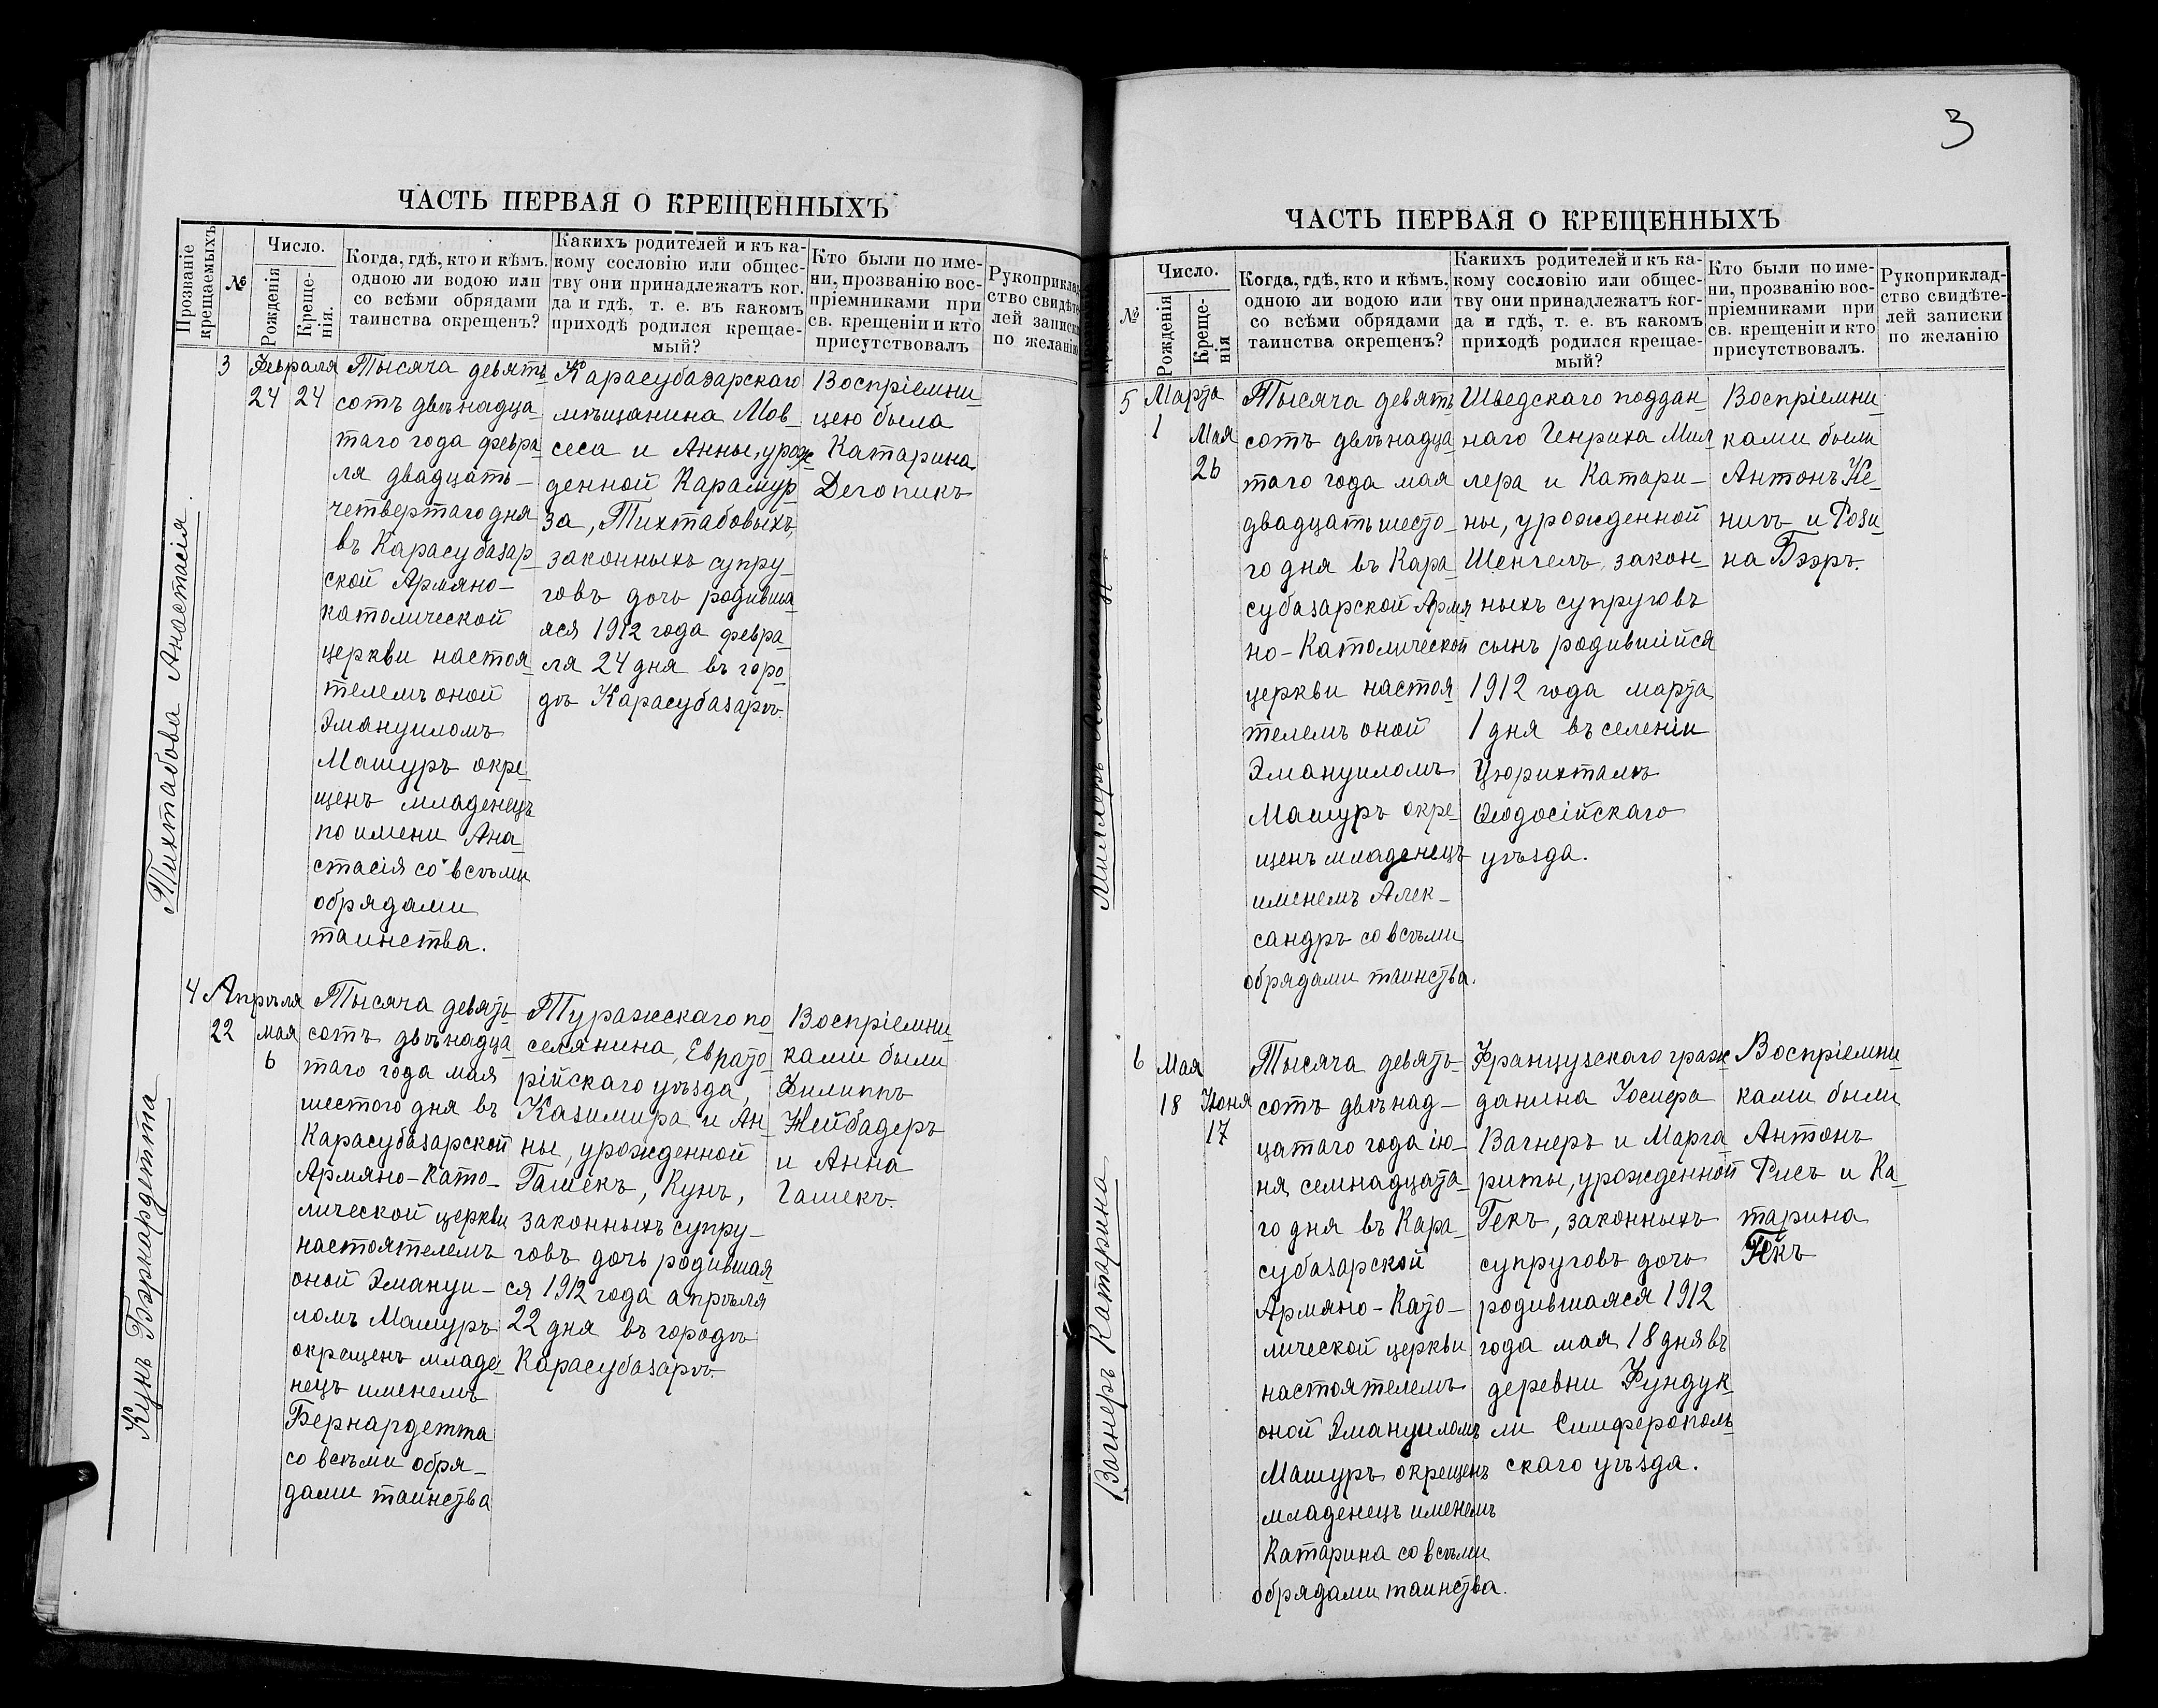 ЧАСТЬ ПЕРВАЯ О КРЕЩЕННЫХЪ
Прозваніе крещаемыхъ
№
Число.
Рожденія
Креще-
нія.
Когда, гдѣ, кто и кѣмъ,
одною ли водою или
со всѣми обрядами
таинства окрещенъ?
Какихъ родителей и къ ка-
кому сословію или общес-
тву они принадлежатъ ког.
да и гдѣ, т. е. въ какомъ
приходѣ родился крещае-
мый?
Кто были по име-
ни, прозванію вос-
пріемниками при
св. крещеніи и кто
присутствовалъ
Рукоприклад
ство свидѣте
лей записки
по желанію
Тихтабова Анастасія
3
Февраля
24 24
Тысяча девять
сотъ двѣнадца
таго года февра
ля двадцать-
четвертаго дня
въ Карасубазар
ской Армяно-
католической
церкви настоя
телемъ оной
Эмануиломъ
Машуръ окре
щенъ младенецъ
по имени Ана
стасія со всѣми
обрядами
таинства.
Карасубазарскаго
мѣщанина Мов-
сеса и Анны, урож
денной Карамур
за, Тихтабовыхъ,
законныхъ супру-
говъ дочь родивша
яся 1912 года февра
ля 24 дня въ горо
дѣ Карасубазарѣ.
Воспріемни
цею была
Катарина
Дегопикъ
Кунъ Бэрнардетта
4
Апрѣля
22
мая
6
Тысяча девять
сотъ двѣнадца
таго года мая
шестого дня въ
Карасубазарской
Армяно-Като-
лической церкви
настоятелемъ
оной Эмануи-
ломъ Машуръ
окрещенъ младе
нецъ именемъ
Бернардетта
со всѣми обря-
дами таинства
Туражскаго по
селянина, Евпато
рійскаго уѣзда,
Казимира и Ан
ны, урожденной
Гашекъ, Кунъ,
законныхъ супру-
говъ дочь родившая
ся 1912 года апрѣля
22 дня въ городѣ
Карасубазарѣ.
Воспріемни
ками были
Филиппъ
Нейбадеръ
и Анна
Гашекъ.
3
ЧАСТЬ ПЕРВАЯ О КРЕЩЕННЫХЪ
№
Число.
Рожденія
Креще-
нія
Когда, гдѣ, кто и кѣмъ,
одною ли водою или
со всѣми обрядами
таинства окрещенъ?
Какихъ родителей и къ ка-
кому сословію или общес-
тву они принадлежатъ ког-
да и гдѣ, т. е. въ какомъ
приходѣ родился крещае-
мый?
Кто были по име-
ни, прозванію вос-
пріемниками при
св. крещеніи и кто
присутствовалъ.
Рукоприклад-
ство свидѣте-
лей записки
по желанію
Миллеръ Александръ
5
Марта
1
Мая
26
Тысяча девять
сотъ двѣнадца
таго года мая
двадцать шесто-
го дня въ Кара
субазарской Армя
но-Католической
церкви настоя
телемъ оной
Эмануиломъ
Машуръ окре
щенъ младенецъ
именемъ Алек-
сандръ со всѣми
обрядами таинства.
Шведскаго поддан-
наго Генриха Мил
лера и Катари-
ны, урожденной
Шенгель, закон-
ныхъ супруговъ
сынъ родившійся
1912 года марта
1 дня въ селеніи
Цюрихталь
Ѳеодосійскаго
уѣзда.
Воспріемни
ками были
Антонъ Ке-
нигъ и Рози
на Бээръ.
Вагнеръ Катарина
6
Мая
18
Іюня
17
Тысяча девять-
сотъ двѣнад-
цатаго года ію-
ня семнадцата
го дня въ Кара
субазарской
Армяно-Като-
лической церкви
настоятелемъ
оной Эмануиломъ
Машуръ окрещенъ
младенецъ именемъ
Катарина со всѣми
обрядами таинства.
Французскаго граж
данина Іосифа
Вагнеръ и Марга
риты, урожденной
Гекъ, законныхъ
супруговъ дочь
родившаяся 1912
года мая 18 дня въ
деревни Фундук
ли Симферополь
скаго уѣзда.
Воспріемни
ками были
Антонъ
Рисъ и Ка
тарина
Гекъ